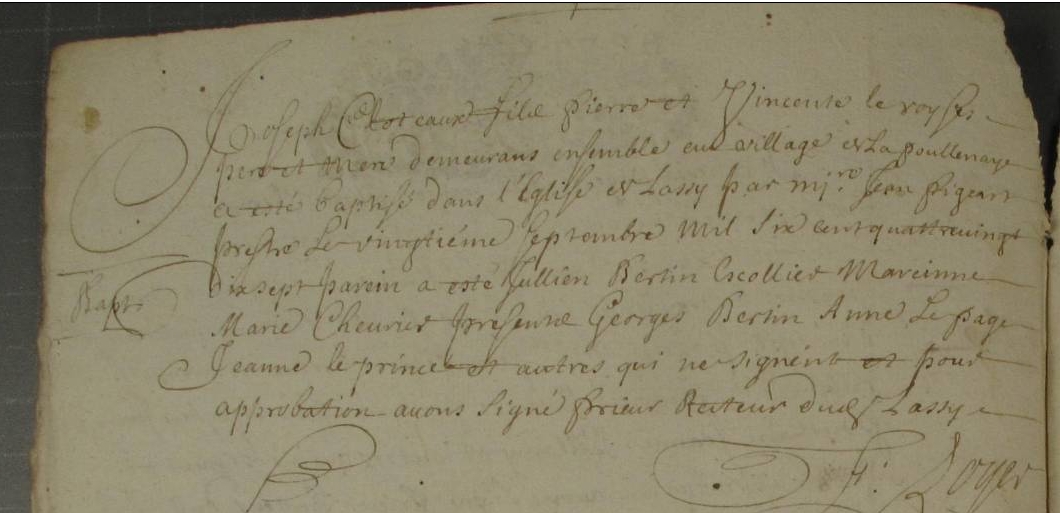 Joseph Cloteaux filz Pierre et Vincente le royss
pere et Mere demeurans ensemble eu village de La poullenaye
a esté baptisé dans l'Eglise de Lassy par mire Jean pigeart
prestre Le vingtiéme septembre Mil six cent quattrevingt
Bapt
dixsept parein a esté Jullien Bertin Escollier Mareinne
Marie Cheurier presente Georges Bertin Anne Le page
Jeanne le prince et autres qui ne signent et pour
approbation auons signé prieur Recteur dud Lassy
F. Royer